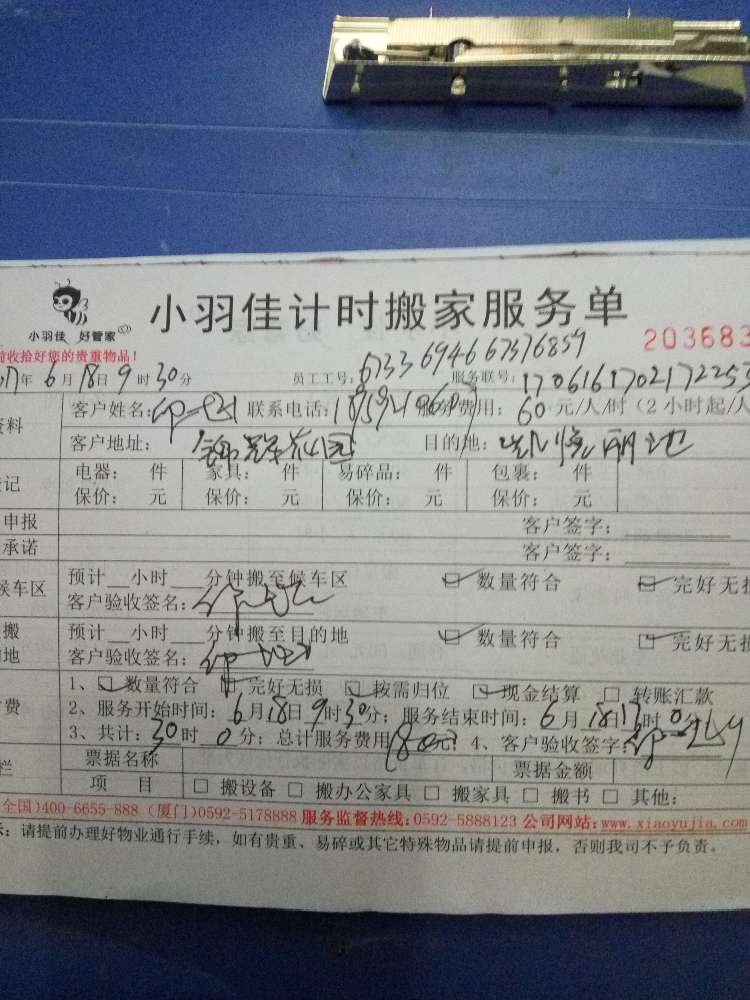 小羽佳 好管家
小羽佳计时搬家服务单
203683
前收拾好您的贵重物品!
年6月18日9时30分 员工工号: 6733 6946 6757 6859 服务联号: 170616170217225
资料 客户姓名: 联系电话: 服务费用: 60元/人/时(2小时起/人
客户地址: 锦葬花园 目的地:
记 电器: 件 家具: 件 易碎品: 件 包裹: 件
保价: 元 保价: 元 保价: 元 保价: 元
申报 客户签字:
承诺 客户签字:
候车区 预计 小时 分钟搬至候车区 ☑数量符合 ☑完好无损
客户验收签名:
搬 预计 小时 分钟搬至目的地 ☑数量符合 ☑完好无损
的地 客户验收签名:
1、☑数量符合 ☑完好无损 ☑按需归位 ☑现金结算 □转账汇款
费 2、服务开始时间: 6月18日9时30分; 服务结束时间: 6月18日13时0分
3、共计: 30时0分; 总计服务费用180元? 4、客户验收签字:
栏 票据名称 票据金额
项 目 □搬设备 □搬办公家具 □搬家具 □搬书 □其他:
全国)400-6655-888 (厦门)0592-5178888 服务监督热线:0592-5888123 公司网站:www.xiaoyujia.com
示: 请提前办理好物业通行手续, 如有贵重、易碎或其它特殊物品请提前申报, 否则我司不予负责。